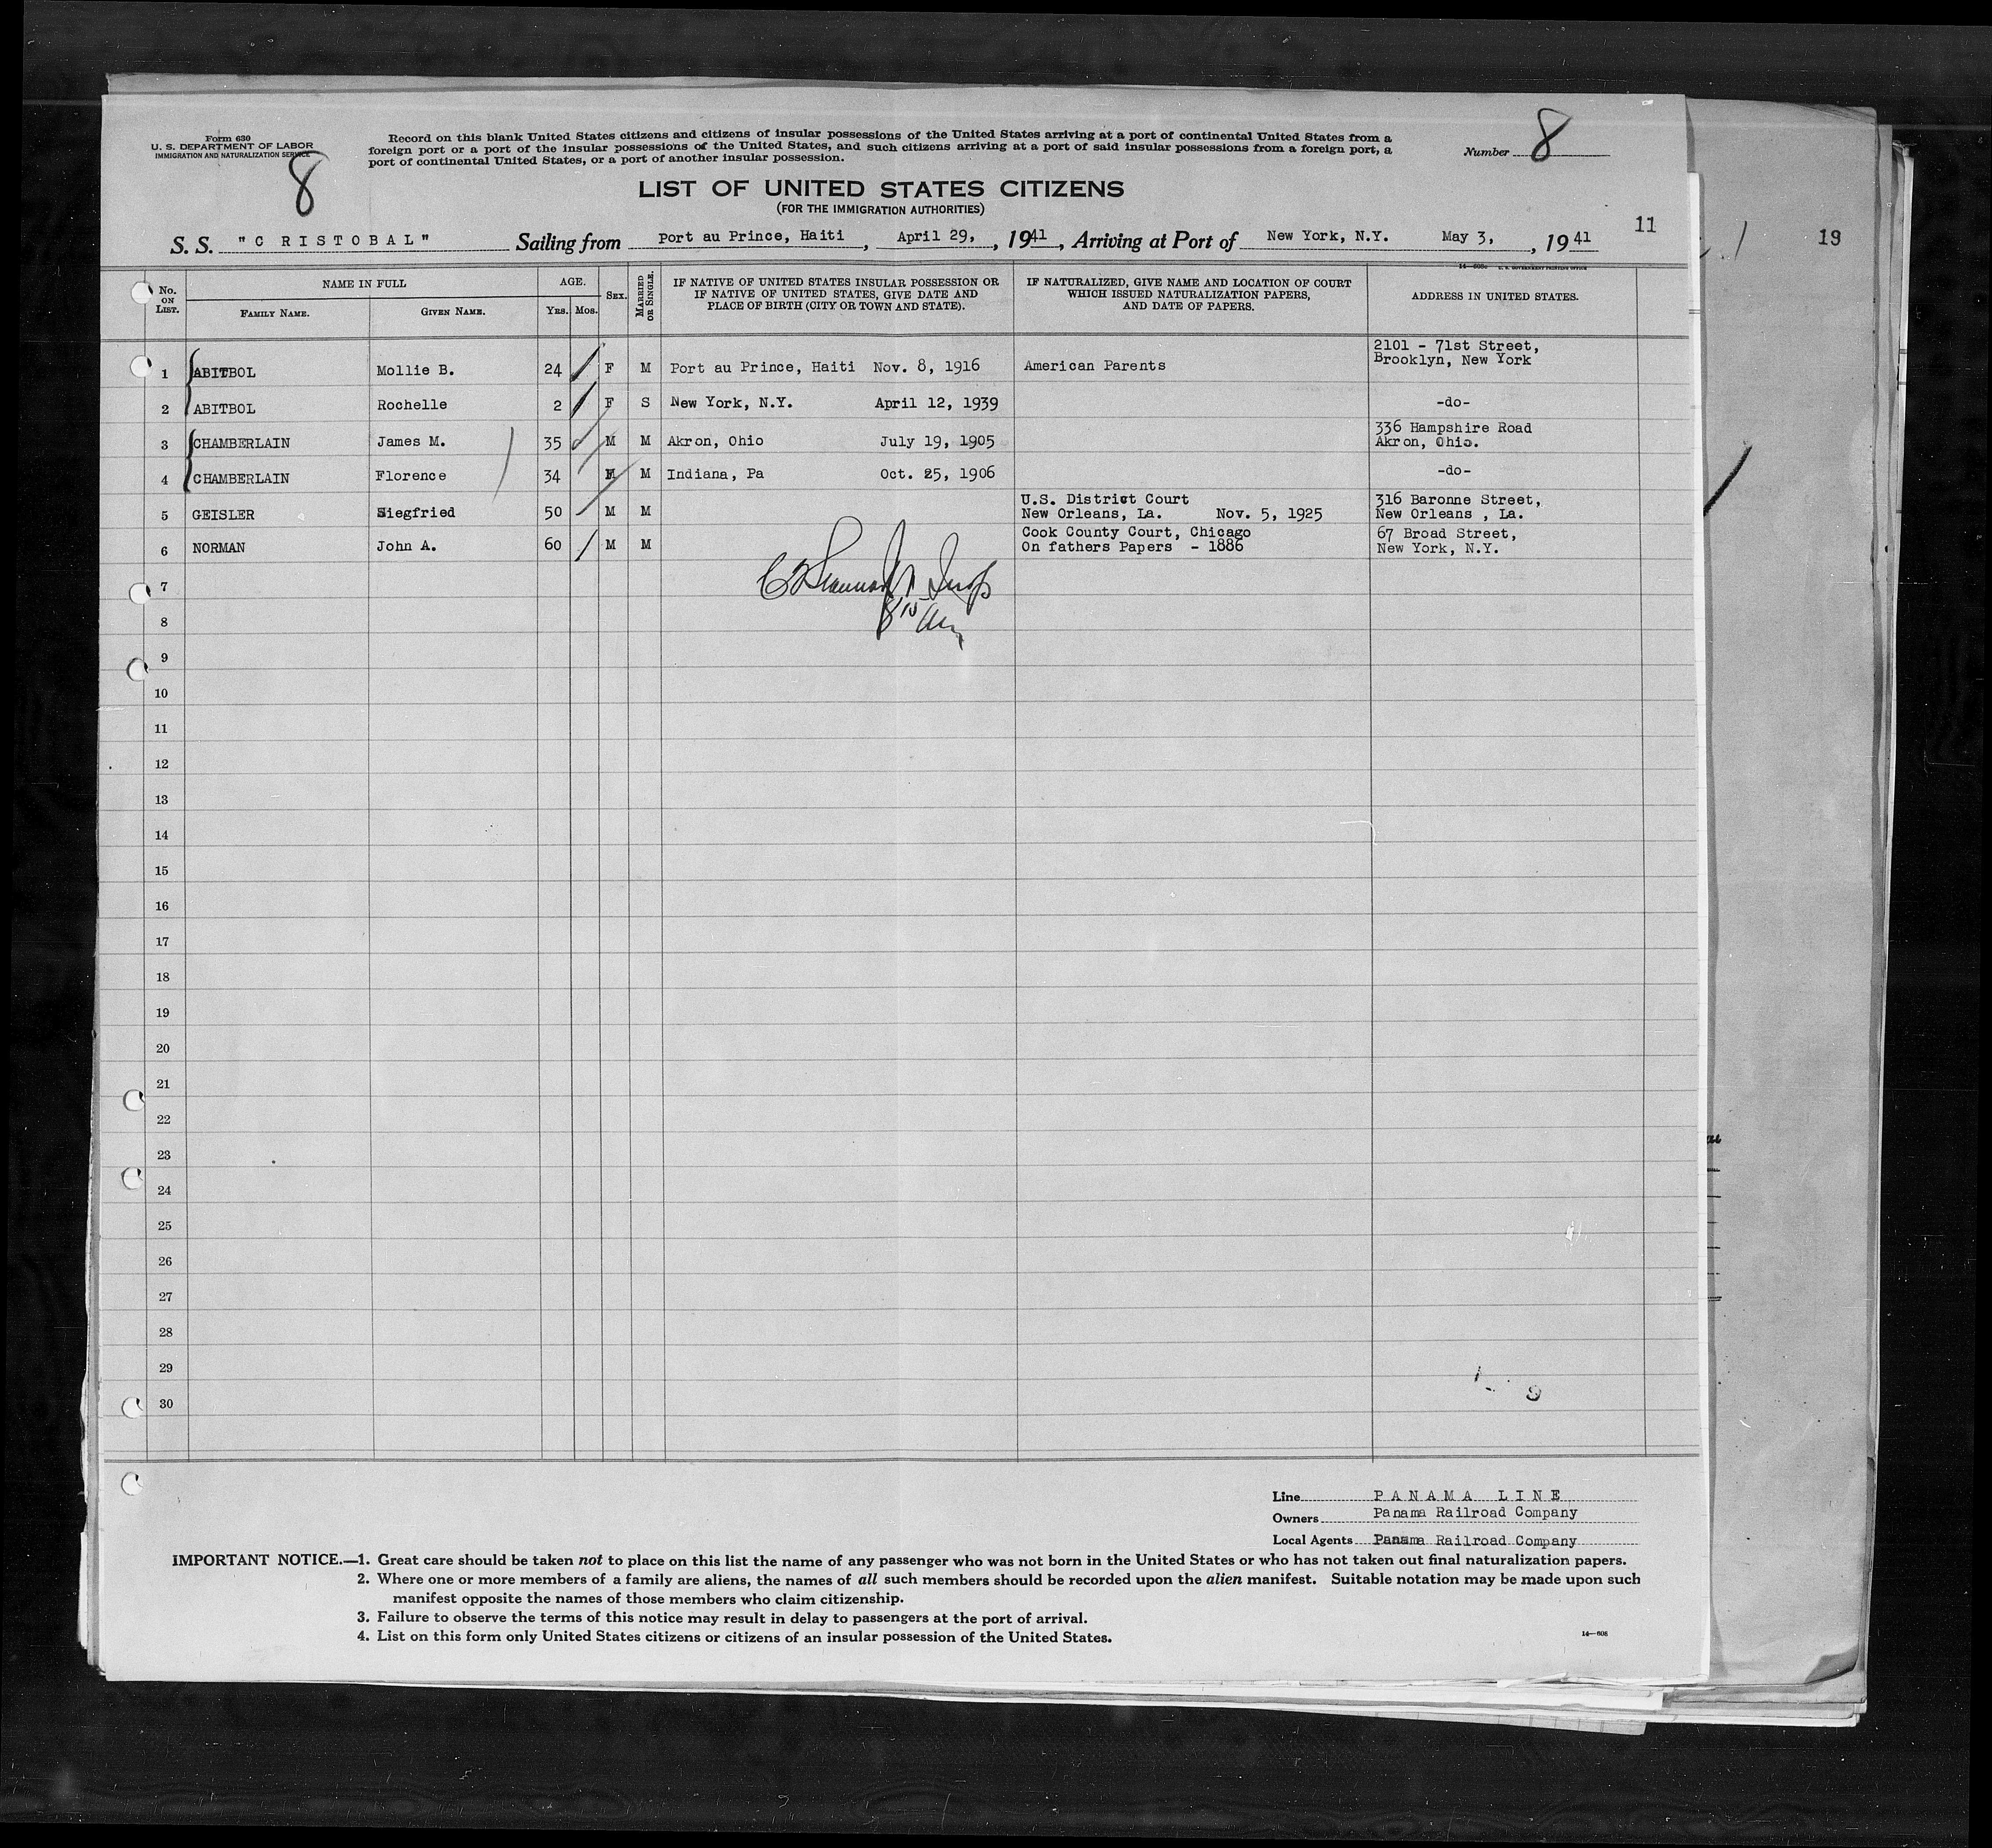 Form 630
U. S. DEPARTMENT OF LABOR
IMMIGRATION AND NATURALIZATION SERVICE
8
Record on this blank United States citizens and citizens of insular possessions of the United States arriving at a port of continental United States from a
foreign port or a port of the insular possessions of the United States, and such citizens arriving at a port of said insular possessions from a foreign port, a
port of continental United States, or a port of another insular possession.
Number 8
LIST OF UNITED STATES CITIZENS
(FOR THE IMMIGRATION AUTHORITIES)
11
19
S. S. "C RISTOBAL" Sailing from Port au Prince, Haiti, April 29, , 1941, Arriving at Port of New York, N.Y. May 3, , 1941
No. ON LIST.
NAME IN FULL
FAMILY NAME.
GIVEN NAME.
AGE.
YRS. MOS.
SEX.
MARRIED OR SINGLE.
IF NATIVE OF UNITED STATES INSULAR POSSESSION OR
IF NATIVE OF UNITED STATES, GIVE DATE AND
PLACE OF BIRTH (CITY OR TOWN AND STATE).
IF NATURALIZED, GIVE NAME AND LOCATION OF COURT
WHICH ISSUED NATURALIZATION PAPERS,
AND DATE OF PAPERS.
ADDRESS IN UNITED STATES.
1 ABITBOL Mollie B. 24 F M Port au Prince, Haiti Nov. 8, 1916 American Parents 2101 - 71st Street,
Brooklyn, New York
2 ABITBOL Rochelle 2 F S New York, N.Y. April 12, 1939 -do-
3 CHAMBERLAIN James M. 35 M M Akron, Ohio July 19, 1905 336 Hampshire Road
Akron, Ohio.
4 CHAMBERLAIN Florence 34 F M Indiana, Pa Oct. 25, 1906 -do-
5 GEISLER Siegfried 50 M M U.S. District Court
New Orleans, La. Nov. 5, 1925
316 Baronne Street,
New Orleans , La.
6 NORMAN John A. 60 M M Cook County Court, Chicago
On fathers Papers - 1886
67 Broad Street,
New York, N.Y.
7
8
9
10
11
12
13
14
15
16
17
18
19
20
21
22
23
24
25
26
27
28
29
30
Line PANAMA LINE
Owners Panama Railroad Company
Local Agents Panama Railroad Company
IMPORTANT NOTICE.—1. Great care should be taken not to place on this list the name of any passenger who was not born in the United States or who has not taken out final naturalization papers.
2. Where one or more members of a family are aliens, the names of all such members should be recorded upon the alien manifest. Suitable notation may be made upon such
manifest opposite the names of those members who claim citizenship.
3. Failure to observe the terms of this notice may result in delay to passengers at the port of arrival.
4. List on this form only United States citizens or citizens of an insular possession of the United States.
14—608